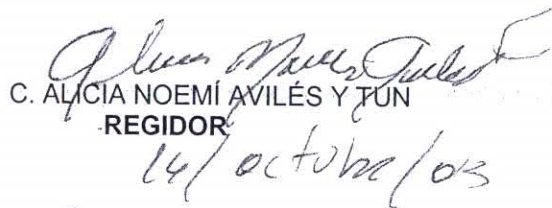 C. ALICIA NOEMÍ AVILÉS Y TUN
REGIDOR
14/octubre/03